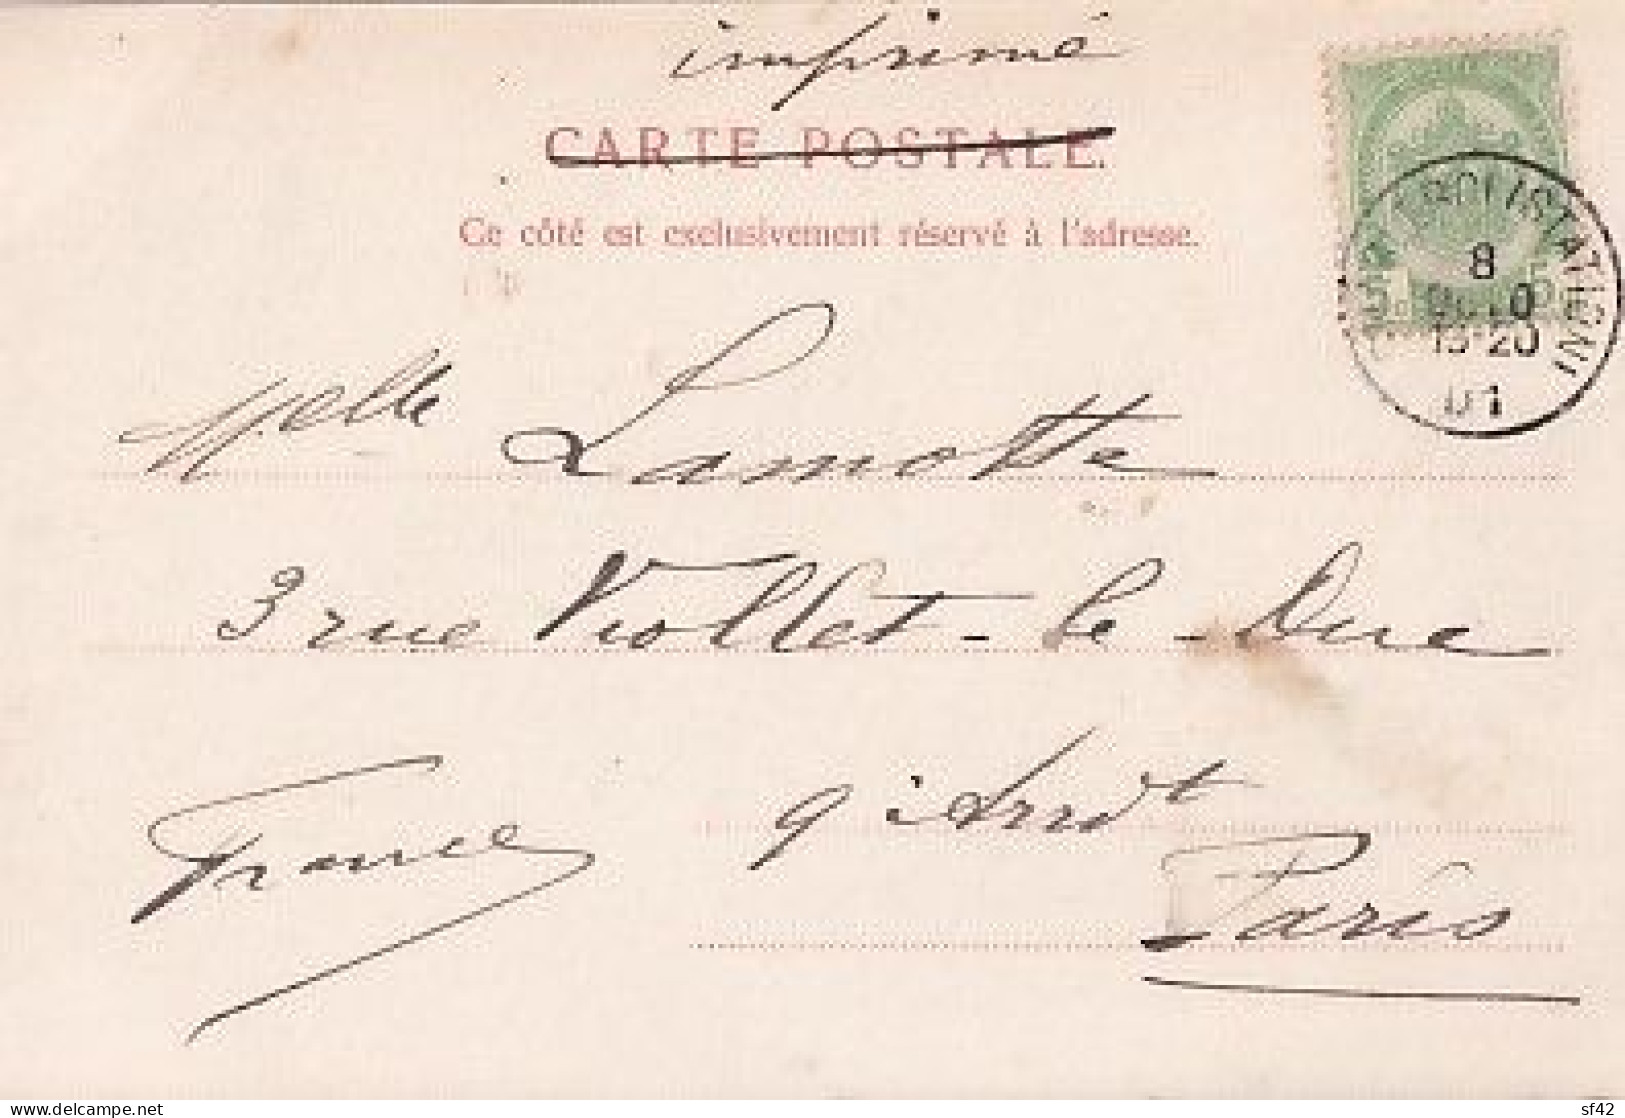 imprimé
CARTE POSTALE.
Ce côté est exclusivement réservé à l'adresse.
8
13-20
01
Melle Lamotte
3 rue Viollet-le-Duc
9 Arrdt
France
Paris
www.delcampe.net
sf42